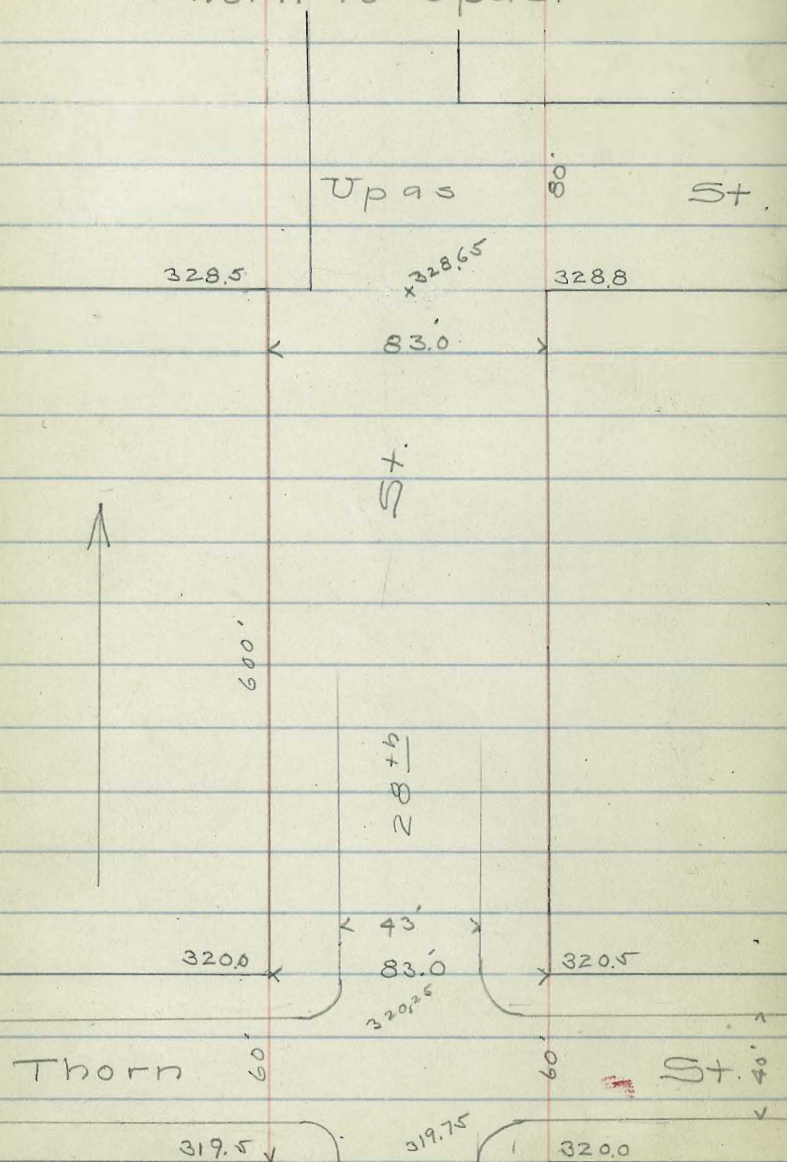 to Upas.
Upas St.
80'
328.5 328.65 328.8
83.0'
St.
600'
28th
43'
83.0'
320.0 320.5
320.25
Thorn 60' 60' St. 40'
319.5 319.75 320.0